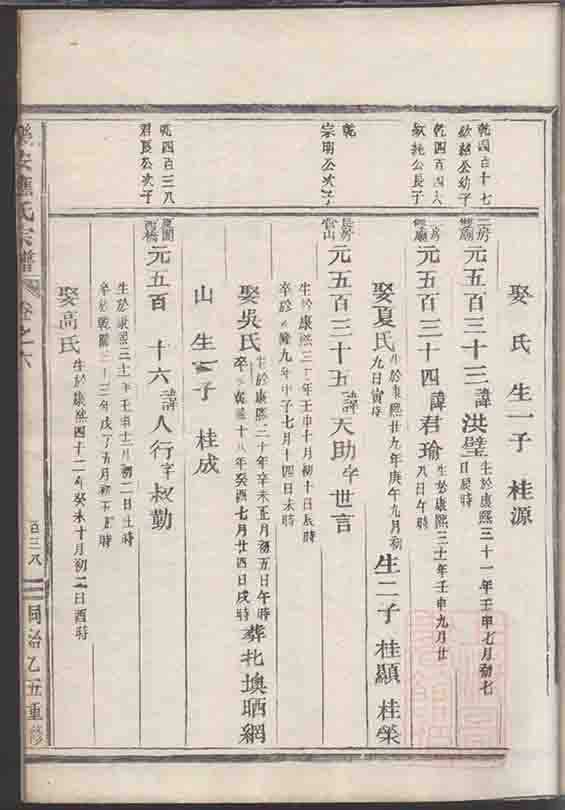 娶 氏 生一子 桂源
乾四百十七
公幼子
房
元五百三十三諱洪璧
生於康熙三十一年壬申七月初七
日辰時
乾四百四六
公長子
元五百三十四諱君瑜
生於康熙三十一年壬申九月廿
八日午時
娶夏氏
生於康熙廿九年庚午九月初
九日寅時
生二子 桂顯 桂榮
乾
宗明公次子
元五百三十五諱天助字世言
生於康熙三十一年壬申十月初十日辰時
卒於乾隆九年甲子七月十四日未時
娶吳氏
生於康熙三十年辛未正月初五日午時
卒於乾隆十八年癸酉七月廿四日戌時
葬牝墺晒網
山 生一子 桂成
乾四百三八
君良公次子
元五百 十六諱人行字叔勤
生於康熙三十一年壬申十二月初二日丑時
娶高氏
生於康熙四十二年癸未十月初二日酉時
應氏宗譜
卷之六
百三八
同治乙丑重修